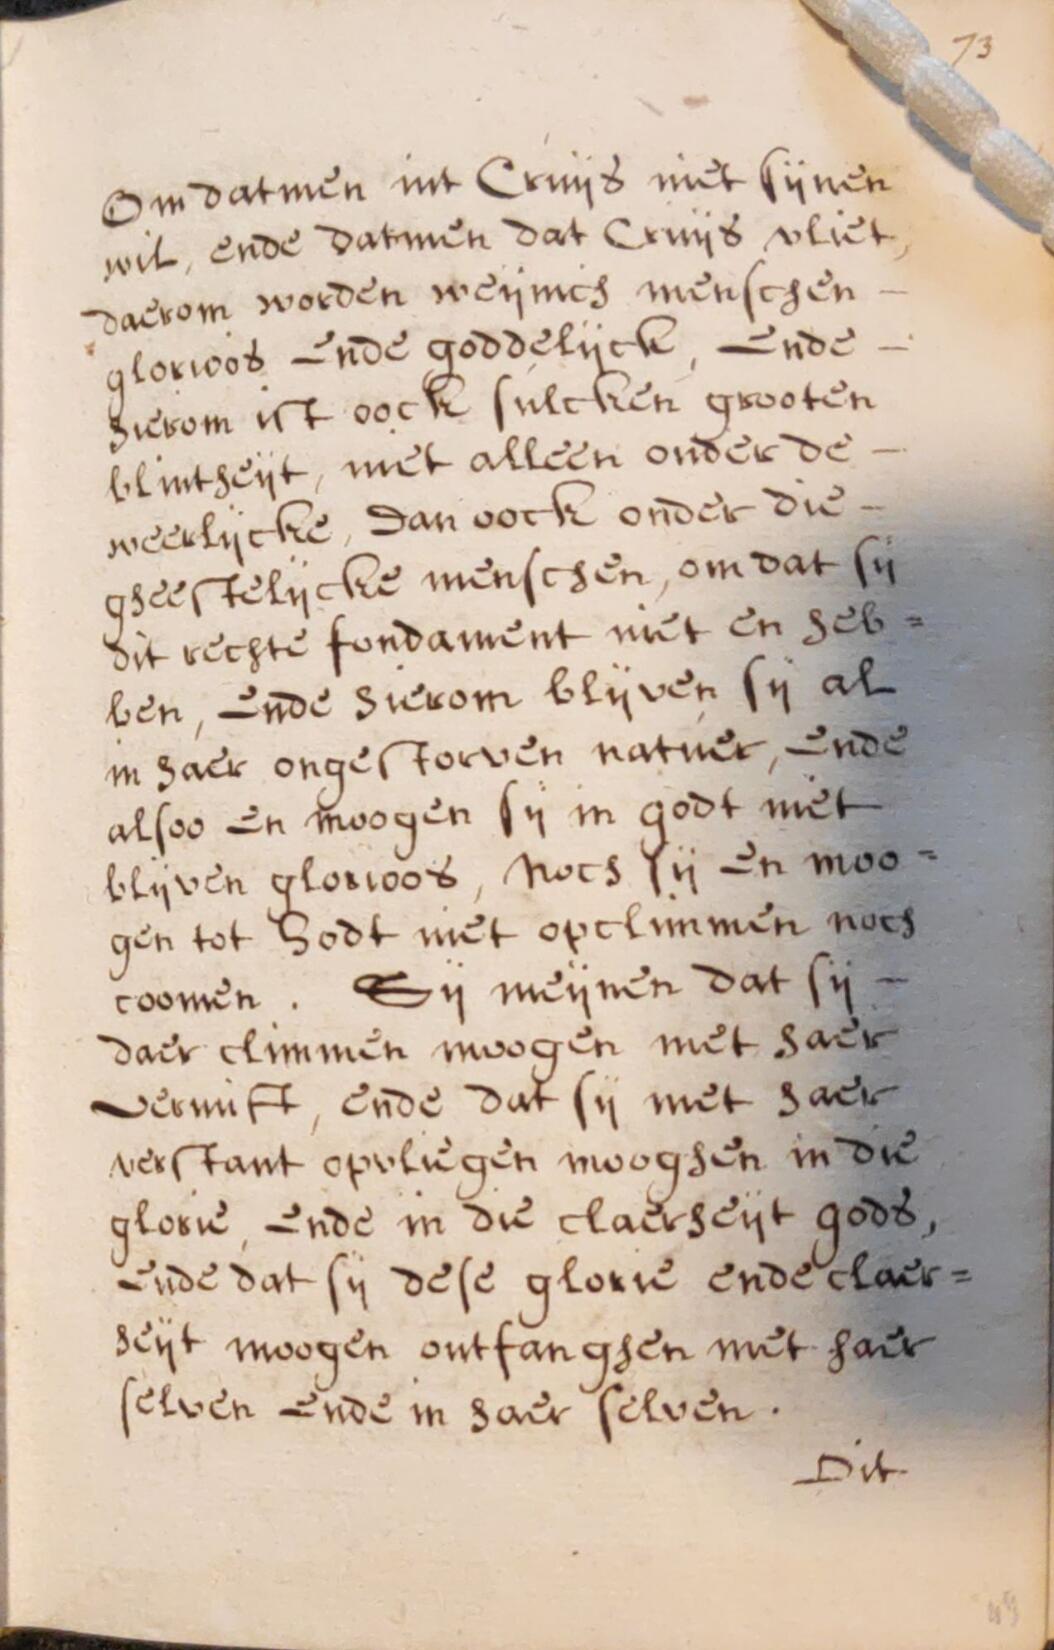 73
Om datmen int Cruijs niet sijnen
wil, ende datmen dat Cruijs vliet,
daerom worden weijnich menschen –
glorioos Ende goddelijck, Ende –
hierom ist oock sulcken grooten
blintheijt, niet alleen onder de –
weerlijcke, Dan oock onder die –
gheestelijcke menschen, om dat sij
dit rechte fondament niet en heb=
ben, Ende hierom blijven sij al
in haer ongestorven natuer, Ende
alsoo En moogen sij in godt niet
blijven glorioos, Noch sij En moo=
gen tot Godt niet opclimmen noch
coomen. Sij meijnen dat sij –
daer climmen moogen met haer
Vernuft, ende dat sij met haer
verstant opvliegen mooghen in die
glorie, Ende in die claerheijt gods,
Ende dat sij dese glorie ende claer=
heijt moogen ontfanghen met haer
selven Ende in haer selven.
Dit
49